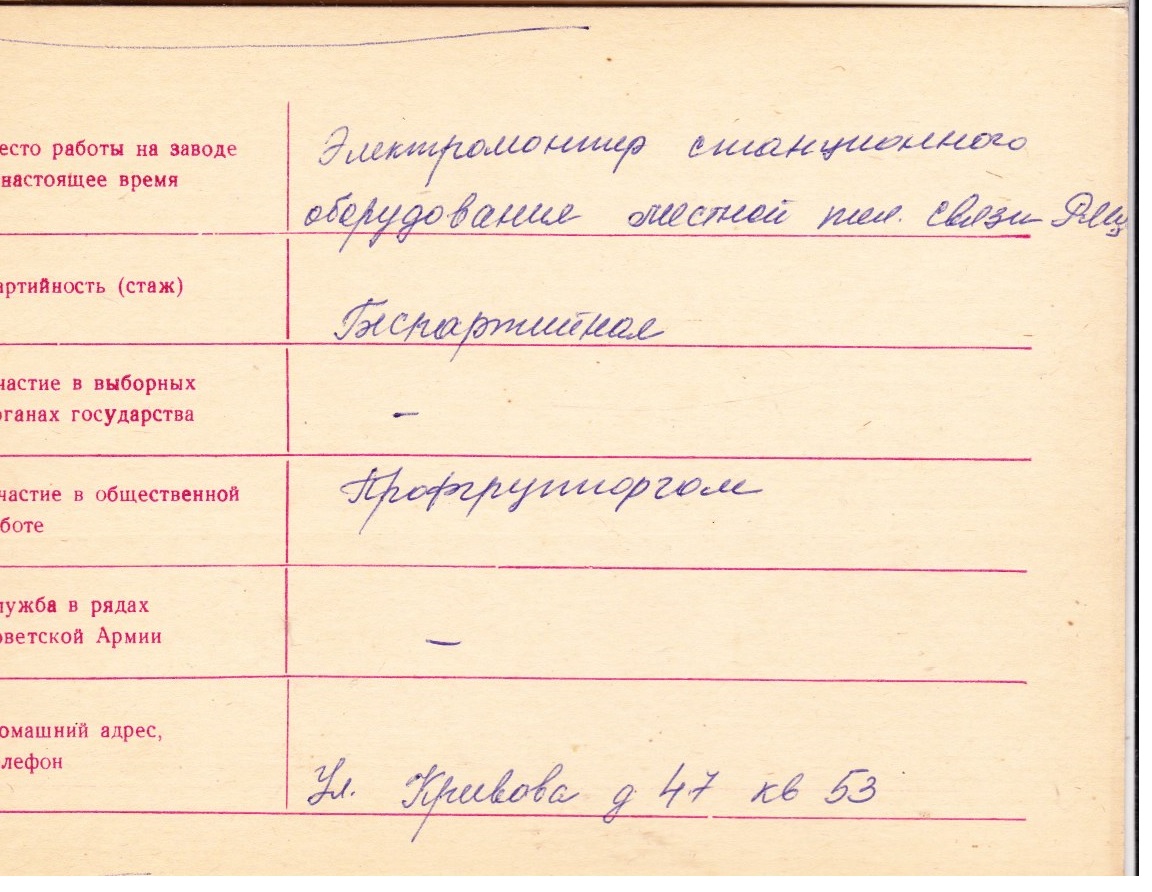 есто работы на заводе
настоящее время
Электромонтер станционного
оборудование местной тел. связи
артийность (стаж)
Беспартийная
частие в выборных
рганах государства
–
частие в общественной
боте
Профгрупоргом
лужба в рядах
оветской Армии
–
омашний адрес,
лефон
Ул. Кривова д 47 кв 53